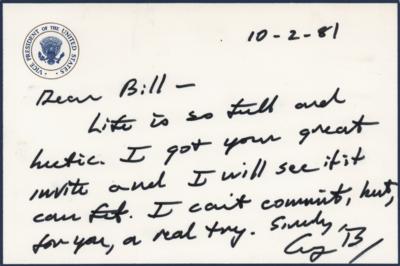 VICE PRESIDENT OF THE UNITED STATES
10-2-81
Dear Bill —
Life is so full and
hectic. I got your great
invite and I will see if it
can fit. I can't commit, but,
for you, a real try. Sincerely,
GB